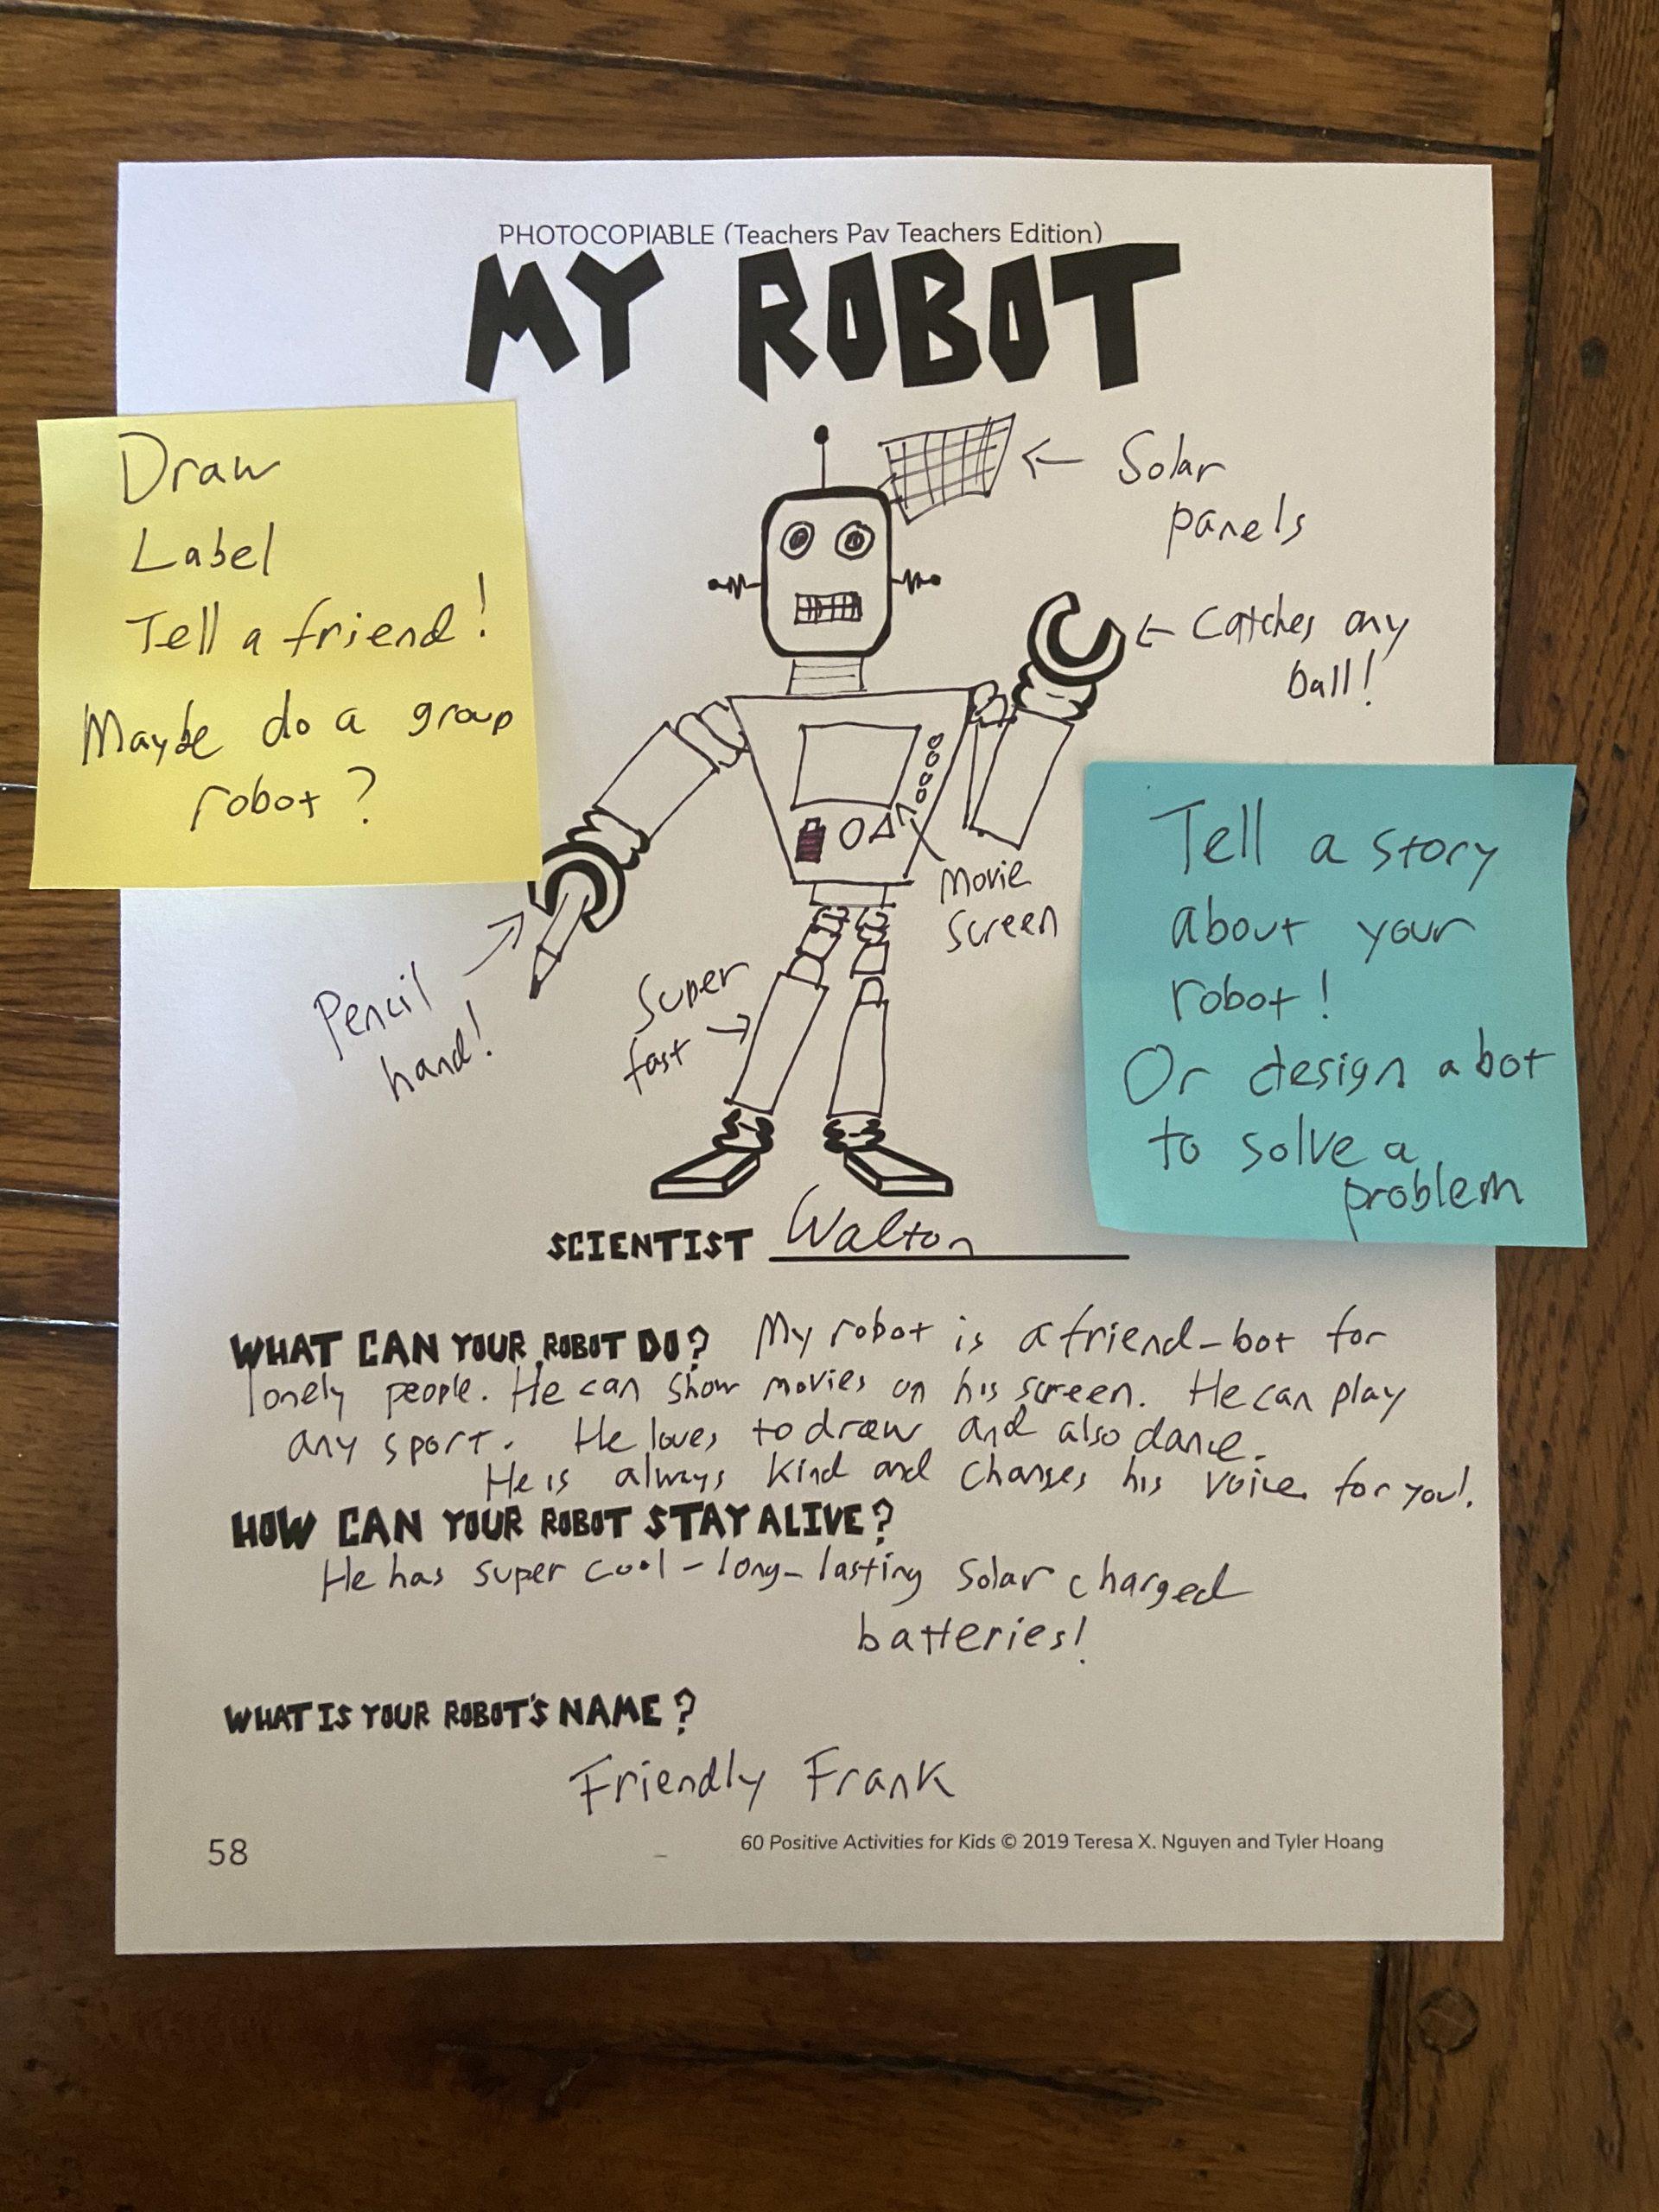 PHOTOCOPIABLE (Teachers Pay Teachers Edition)
MY ROBOT
Draw
Label
Tell a friend!
Maybe do a group
robot?
← Solar
panels
← Catches any
ball!
Movie
Screen
Pencil
hand!
Super
fast
Tell a story
about your
robot!
Or design a bot
to solve a
problem
SCIENTIST Walton
WHAT CAN YOUR ROBOT DO? My robot is a friend-bot for
lonely people. He can show movies on his screen. He can play
any sport. He loves to draw and also dance.
He is always kind and changes his voice for you!
HOW CAN YOUR ROBOT STAY ALIVE?
He has super cool-long-lasting solar charged
batteries!
WHAT IS YOUR ROBOT'S NAME?
Friendly Frank
58
60 Positive Activities for Kids © 2019 Teresa X. Nguyen and Tyler Hoang